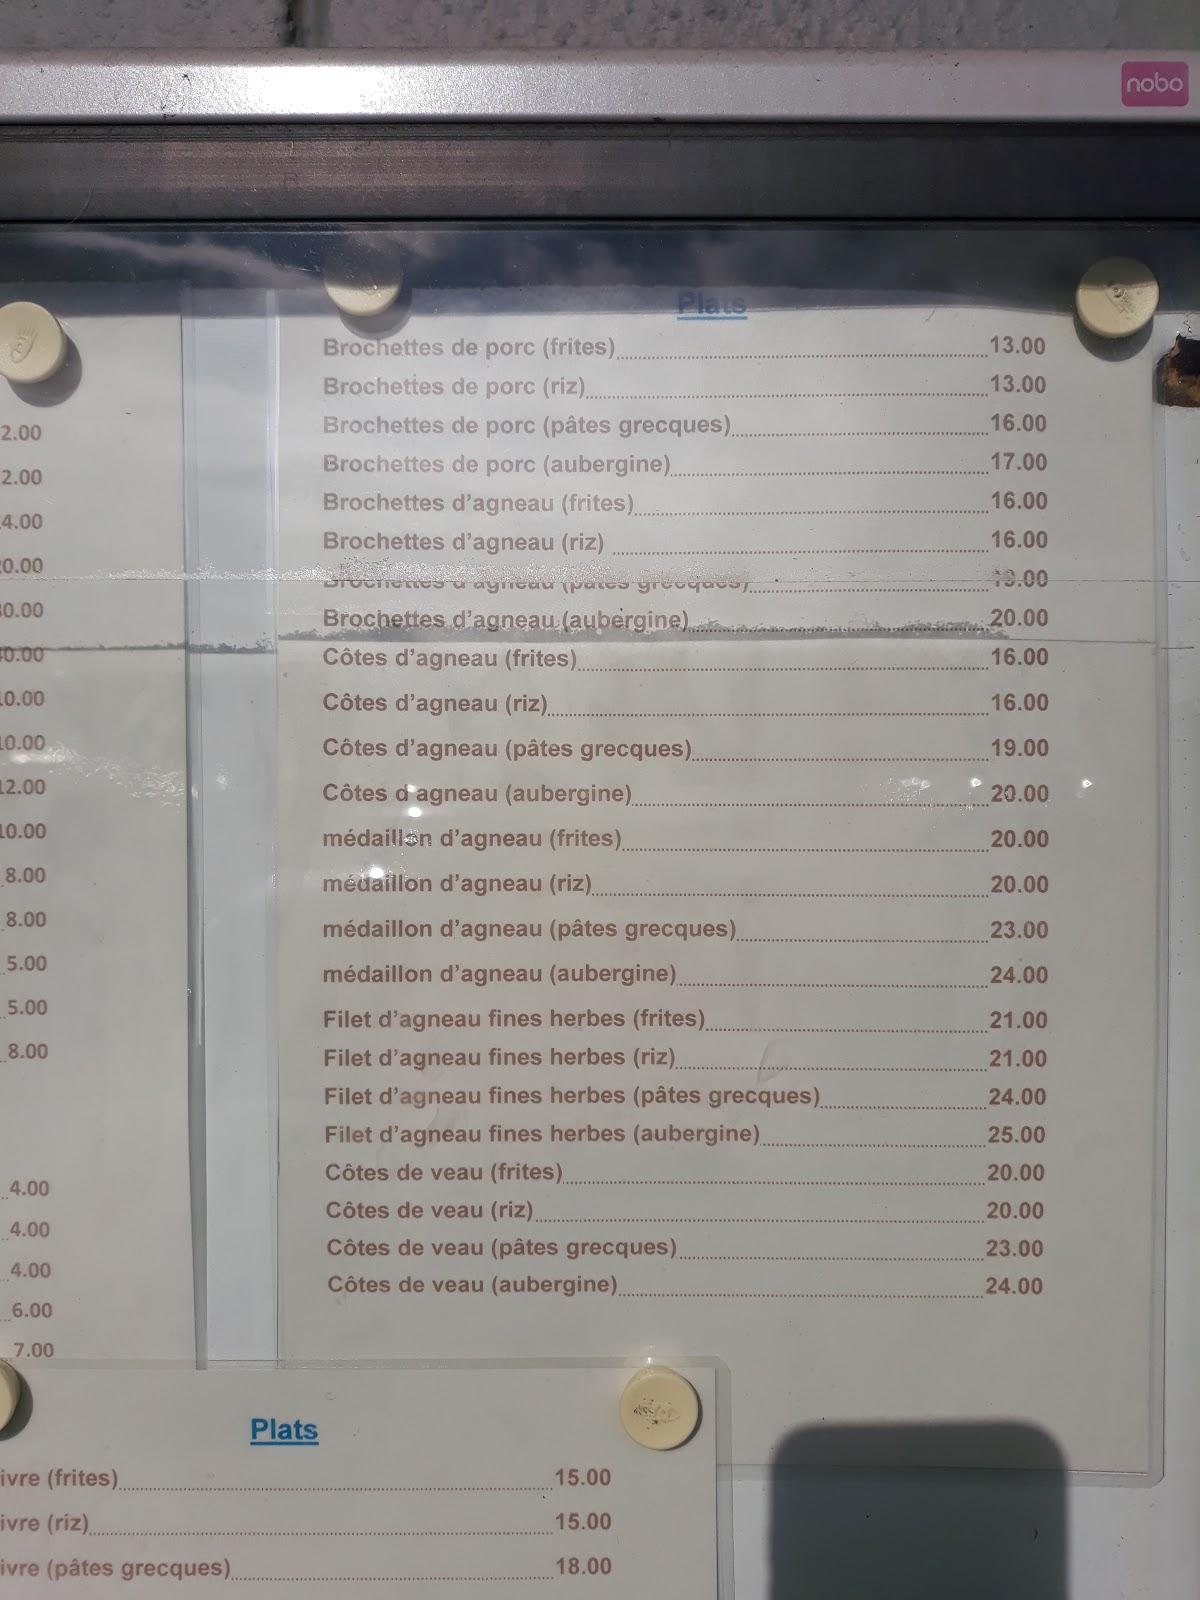 nobo
Plats
Brochettes de porc (frites) 13.00
Brochettes de porc (riz) 13.00
Brochettes de porc (pâtes grecques) 16.00
Brochettes de porc (aubergine) 17.00
Brochettes d'agneau (frites) 16.00
Brochettes d'agneau (riz) 16.00
Brochettes d'agneau (pâtes grecques)
Brochettes d'agneau (aubergine) 20.00
Côtes d'agneau (frites) 16.00
Côtes d'agneau (riz) 16.00
Côtes d'agneau (pâtes grecques) 19.00
Côtes d'agneau (aubergine) 20.00
médaillon d'agneau (frites) 20.00
médaillon d'agneau (riz) 20.00
médaillon d'agneau (pâtes grecques) 23.00
médaillon d'agneau (aubergine) 24.00
Filet d'agneau fines herbes (frites) 21.00
Filet d'agneau fines herbes (riz) 21.00
Filet d'agneau fines herbes (pâtes grecques) 24.00
Filet d'agneau fines herbes (aubergine) 25.00
Côtes de veau (frites) 20.00
Côtes de veau (riz) 20.00
Côtes de veau (pâtes grecques) 23.00
Côtes de veau (aubergine) 24.00
2.00
2.00
4.00
20.00
30.00
40.00
10.00
10.00
12.00
10.00
8.00
8.00
5.00
5.00
8.00
4.00
4.00
4.00
6.00
7.00
Plats
ivre (frites) 15.00
ivre (riz) 15.00
ivre (pâtes grecques) 18.00